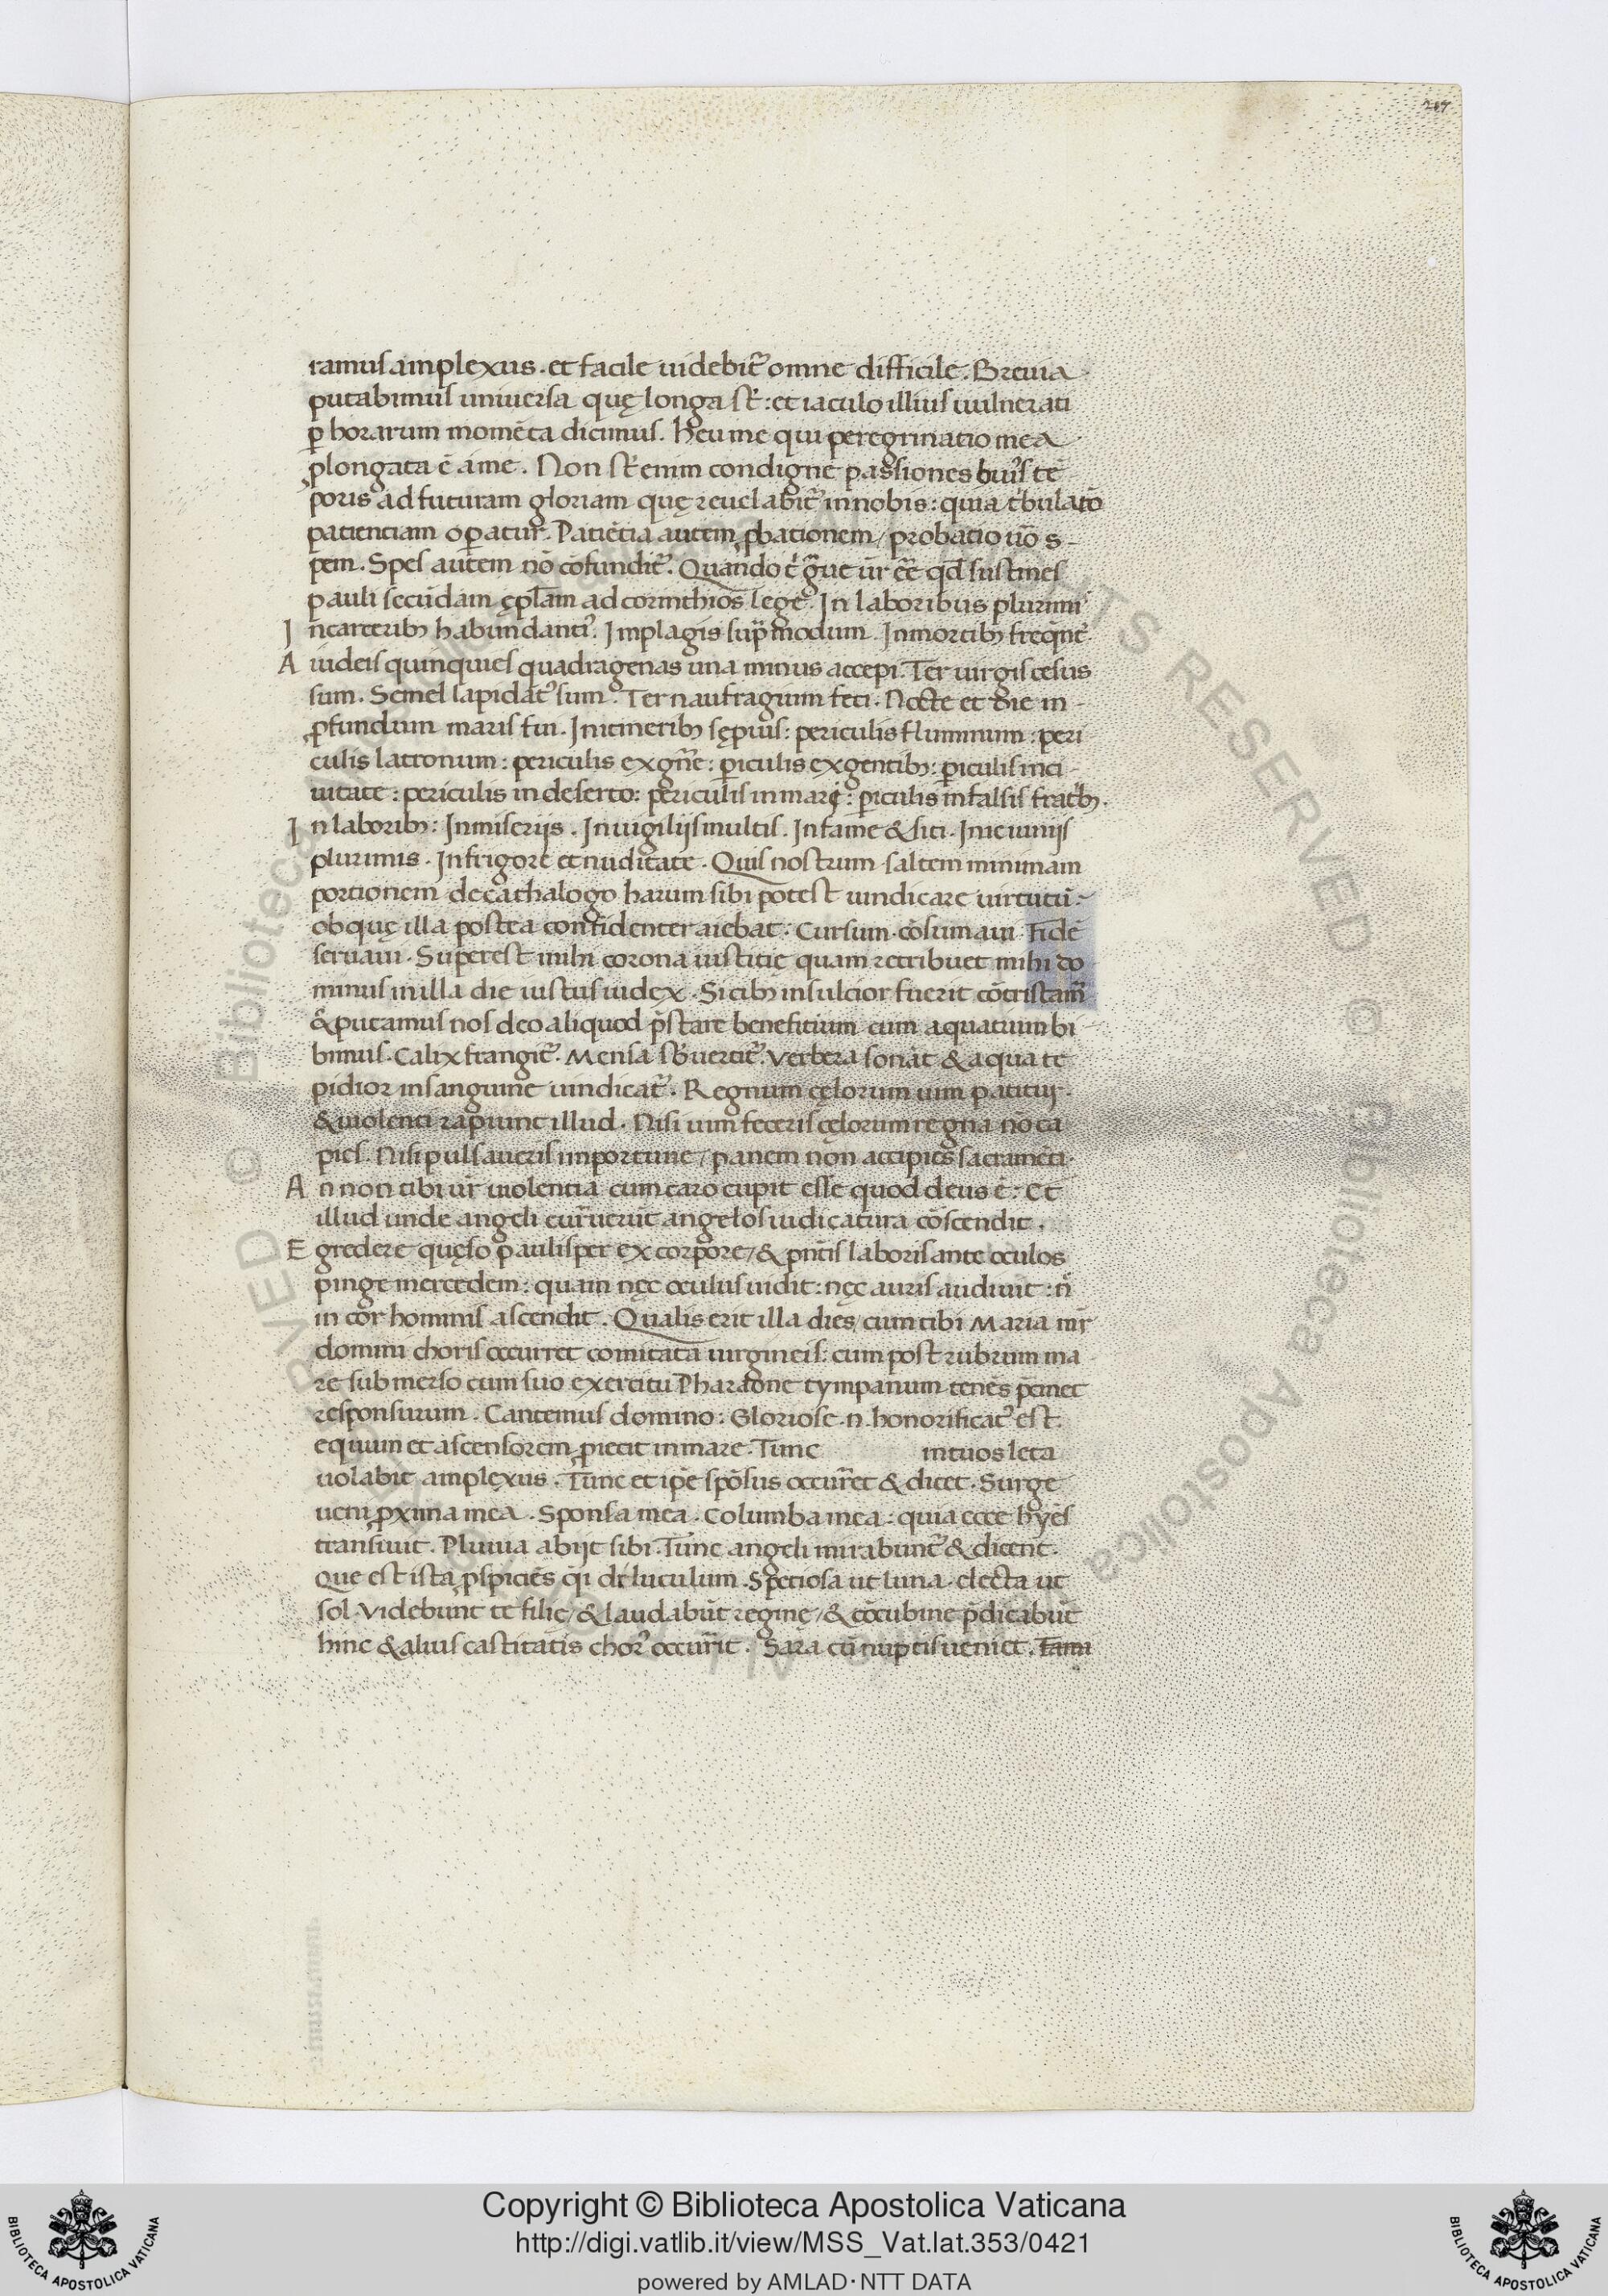 207
ramus amplexus. et facile uidebit᷑ omne difficile. Breuia
putabimus uniuersa quę longa st̄: et iaculo illius uulnerati
ꝑ horarum momēta dicimus. heu me qui peregrinatio mea
ꝓlongata ē a me. Non st̄ enim condigne passiones huiꝰ tē
poris ad futuram gloriam quę reuelabit᷑ in nobis: quia tͥbulatō
patientiam oꝑatur. Patiētia autem ꝓbationem / probatio uō s-
pem. Spes autem nō cōfundit᷑. Quando tͥ gͣue ūr eē qd̄ sustines
pauli secūdam ępl̄am ad corinthios lege. In laboribus plurimi
In carceribꝫ habundantiꝰ. In plagis sup̄ modum. In mortibꝫ freqn̄t᷑.
A iudeis quinquies quadragenas una minus accepi. Ter uirgis cesus
sum. Semel lapidatꝰ sum. Ter naufragium feci. Nocte et die in-
ꝓfundum maris fui. In itineribꝫ sępius: periculis fluminum: peri
culis latronum: periculis ex gn̄e: ꝑiculis ex gentibꝫ: ꝑiculis in ci-
uitate: periculis in deserto: periculis in marę: ꝑiculis in falsis fratͥbꝫ.
In laboribꝫ: In miserijs. In uigilijs multis. In fame & siti. In ieiunijs
plurimis. In frigore et nuditate. Quis nostrum saltem minimam
portionem de cathalogo harum sibi potest uindicare uirtutū:-
ob quę illa postea confidenter aiebat. Cursum cōsumaui. Fidē
seruaui. Superest mihi corona iustitie quam retribuet mihi do
minus in illa die iustus iudex. Si cibꝫ insulcior fuerit cōtristam᷑
& putamus nos deo aliquod p̄stare benefitium cum aquatum bi
bimus. Calix frangit᷑. Mensa sb̄uertit᷑. Verbera sonāt & aqua te
pidior in sanguine uindicat᷑. Regnum cęlorum uim patitur.
& uiolenti rapiunt illud. Nisi uim feceris cęlorum regna nō ca
pies. Nisi pulsaueris importune / panem non accipies sacramēti.
An non tibi ūr uiolentia cum caro cupit esse quod deus ē: Et
illud unde angeli curͬuerūt angelos iudicatura cōscendit.
Egredere quęso paulisper ex corpore / & pn̄tis laboris ante oculos
pinge mercedem: quam nęc oculus uidit: nęc auris audiuit: n̄
in cor hominis ascendit. Qualis erit illa dies / cum tibi Maria mr̄
domini choris occurret comitata uirgineis: cum post rubrum ma
re submerso cum suo exercitu Pharaone tympanum tenēs p̄cinet
responsurum. Cantemus domino: Gloriose .n. honorificatꝰ est.
equum et ascensorem ꝓiecit in mare. Tunc in tuos leta
uolabit amplexus. Tūnc et ip̄e spōsus occurr̄et & dicet. Surge
ueni ꝓxima mea. Sponsa mea. Columba mea: quia ecce hyēs
transiuit. Pluuia abijt sibi. Tūnc angeli mirabunt᷑ & dicent.
Que est ista ꝓspiciēs q̄i diluculum. Speciosa ut luna. electa ut
sol. Videbunt te filię / & laudabūt reginę / & cōcubine p̄dicabūt
hinc & alius castitatis chorꝰ occurr̄it. Sara cū nuptis ueniet.
Copyright © Biblioteca Apostolica Vaticana
http://digi.vatlib.it/view/MSS_Vat.lat.353/0421
powered by AMLAD·NTT DATA
BIBLIOTECA APOSTOLICA VATICANA
BIBLIOTECA APOSTOLICA VATICANA